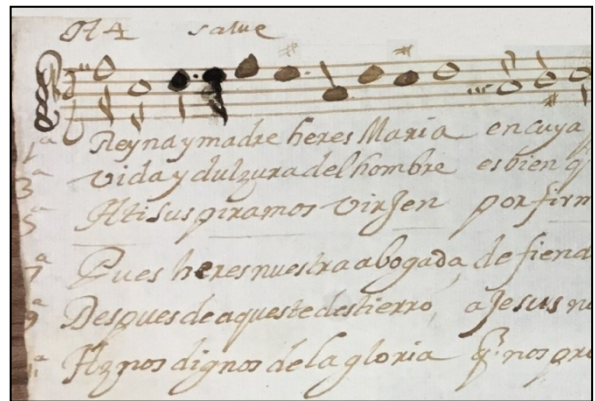 A 4 salve
1ª Reyna y madre heres Maria en cuya
3ª vida y dulzura del hombre es bien q
5ª A ti suspiramos Virjen por firm
7ª Pues heres nuestra abogada, de fiend
9ª Despues de aqueste destierro, a Jesus nu
11ª Haz nos dignos de la gloria q.ᵉ nos pro